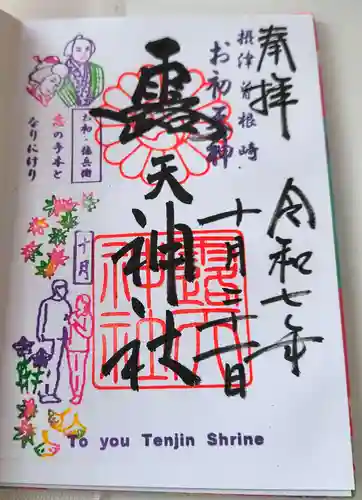 奉拝
令和七年
摂津曽根崎
お初天神
十月三十一日
露天神社
露天
神社
お初・徳兵衛
恋の手本と
なりにけり
十月
To you Tenjin Shrine